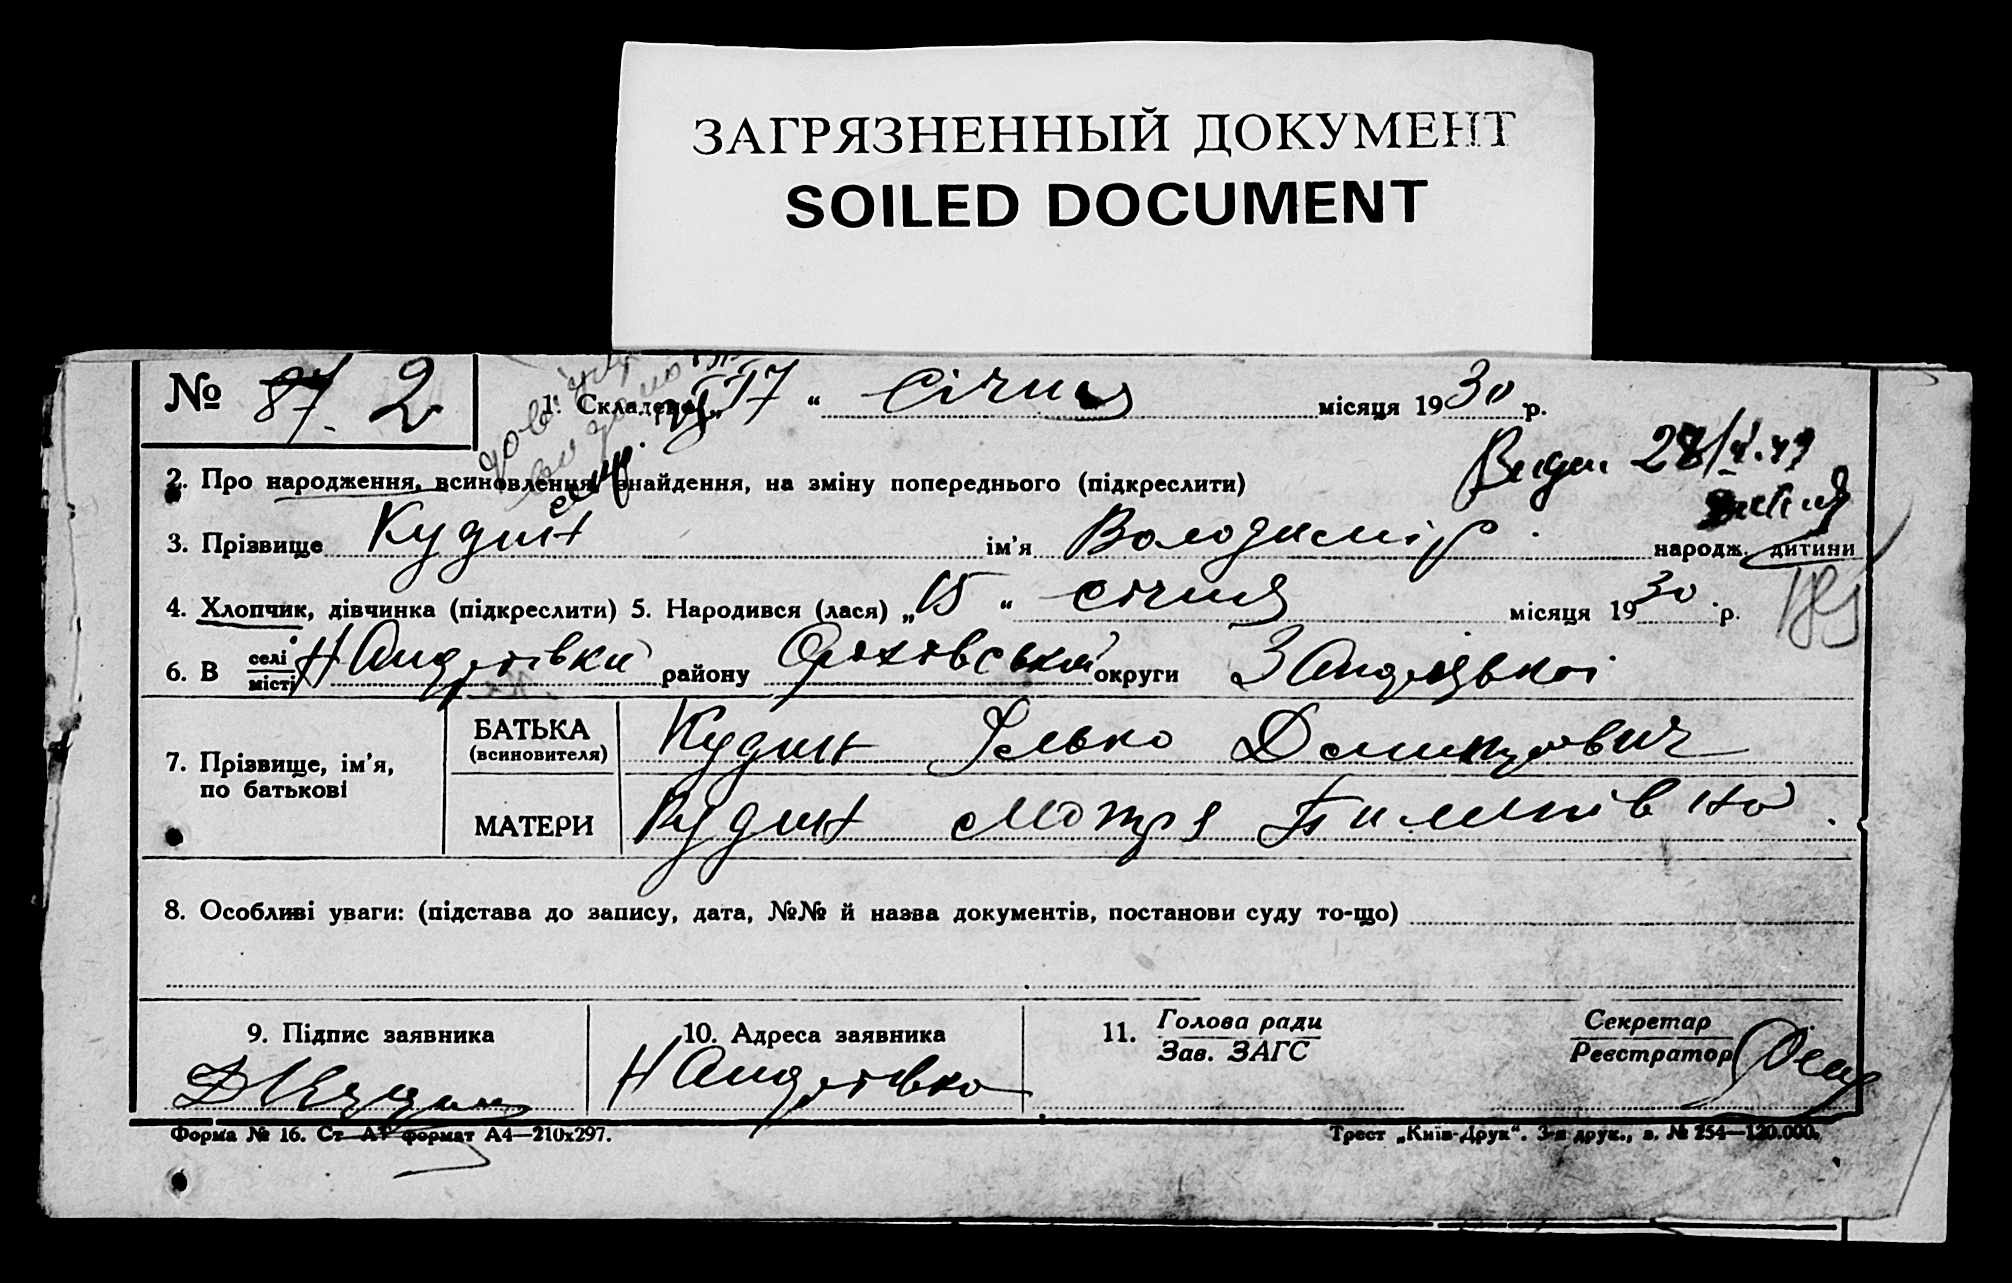 ЗАГРЯЗНЕННЫЙ ДОКУМЕНТ
SOILED DOCUMENT
№ 87. 2
1. Складено „17“ січня місяця 1930 р.
2. Про народження, всиновлення, знайдення, на зміну попереднього (підкреслити)
3. Прізвище Кудин ім'я Володимір народж. дитини
4. Хлопчик, дівчинка (підкреслити) 5. Народився (лася) „15“ січня місяця 1930 р.
6. В селі місті Н Андріївки району Оріхівський округи Запоріжької
7. Прізвище, ім'я, по батькові
БАТЬКА (всиновителя) Кудин Ілько Дмитрович
МАТЕРИ Кудин Мотря
8. Особливі уваги: (підстава до запису, дата, №№ й назва документів, постанови суду то-що)
9. Підпис заявника
10. Адреса заявника
11. Голова ради Зав. ЗАГС
Секретар Реєстратор
Н Андріївка
Форма № 16. Ст. А4 формат А4—210х297.
Трест „Київ-Друк“. 3-я друк., з. № 254—120.000.